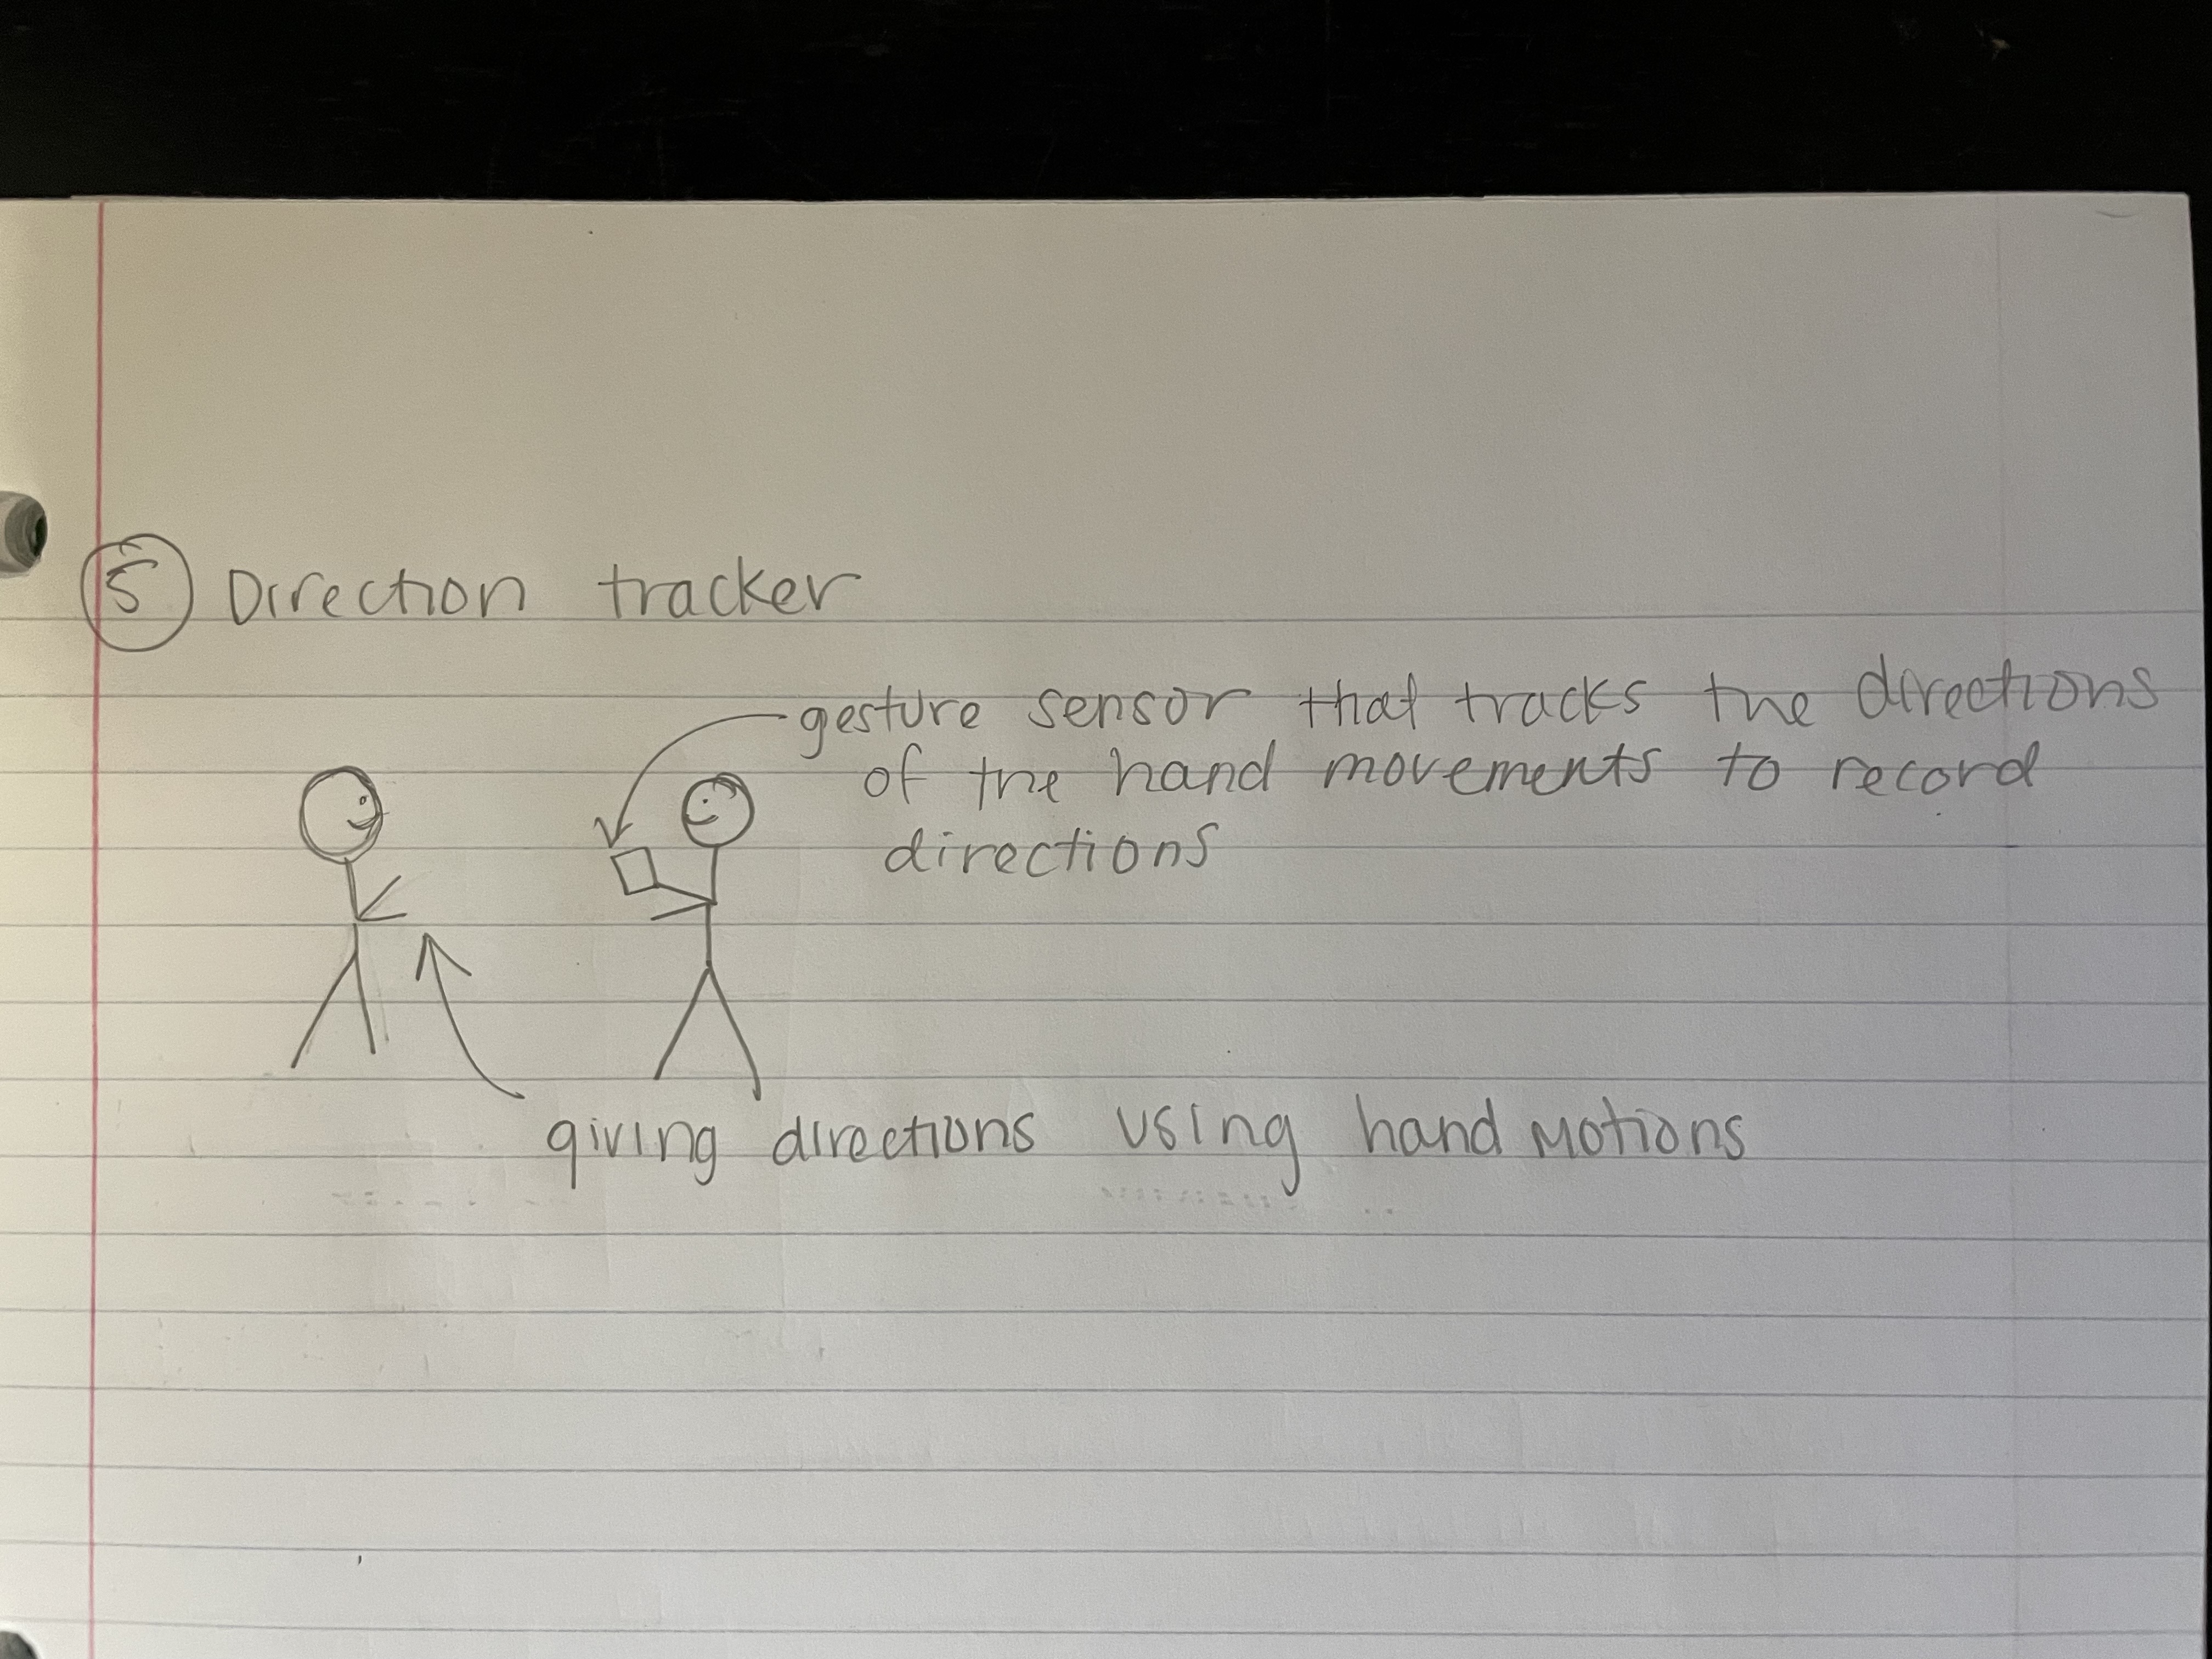 5 Direction tracker
gesture sensor that tracks the directions
of the hand movements to record
directions
giving directions using hand motions